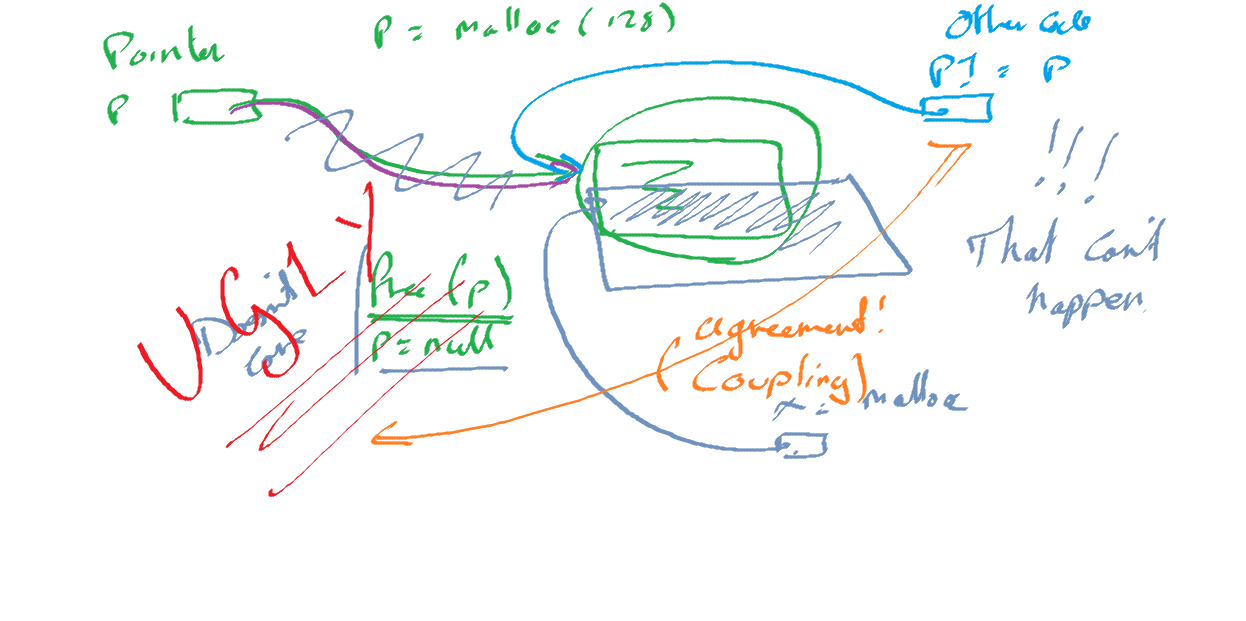 Pointer
P
P = malloc (128)
Other code
P1 = P
!!!
That can't
happen.
UGLY
Doesn't
Care
Free (p)
P = null
agreement!
(Coupling)
x = malloc